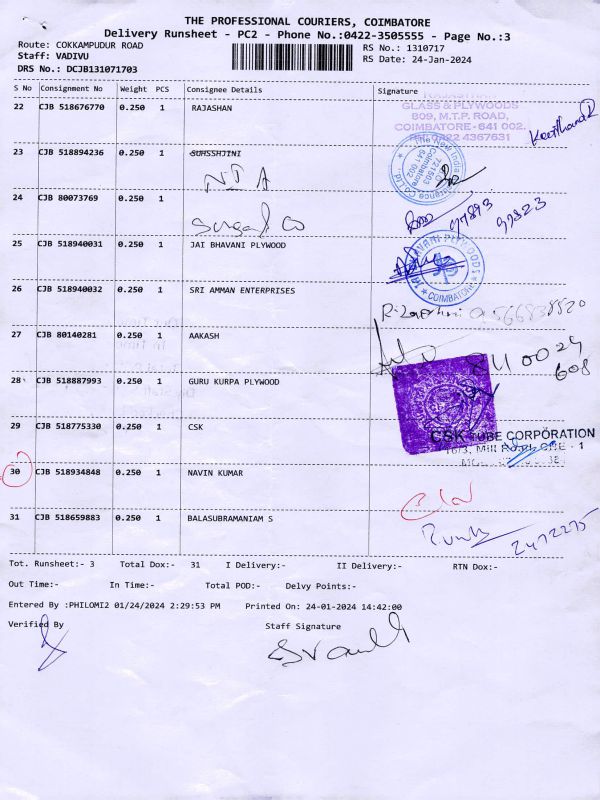 THE PROFESSIONAL COURIERS, COIMBATORE
Delivery Runsheet - PC2 - Phone No.:0422-3505555 - Page No.:3
Route: COKKAMPUDUR ROAD
RS No.: 1310717
Staff: VADIVU
RS Date: 24-Jan-2024
DRS No.: DCJB131071703
S No Consignment No Weight PCS Consignee Details Signature
22 CJB 518676770 0.250 1 RAJASHAN
GLASS & PLYWOODS
809, M.T.P. ROAD,
COIMBATORE - 641 002.
23 CJB 518894236 0.250 1 SUHSSHJINI
NIA
The New India
Coimbatore
641 002
721503
24 CJB 80073769 0.250 1
25 CJB 518940031 0.250 1 JAI BHAVANI PLYWOOD
COIMBATORE
26 CJB 518940032 0.250 1 SRI AMMAN ENTERPRISES
27 CJB 80140281 0.250 1 AAKASH
28 CJB 518887993 0.250 1 GURU KURPA PLYWOOD
29 CJB 518775330 0.250 1 CSK
CSK TUBE CORPORATION
30 CJB 518934848 0.250 1 NAVIN KUMAR
31 CJB 518659883 0.250 1 BALASUBRAMANIAM S
2472275
Tot. Runsheet:- 3 Total Dox:- 31 I Delivery:- II Delivery:- RTN Dox:-
Out Time:- In Time:- Total POD:- Delvy Points:-
Entered By :PHILOMI2 01/24/2024 2:29:53 PM Printed On: 24-01-2024 14:42:00
Verified By Staff Signature